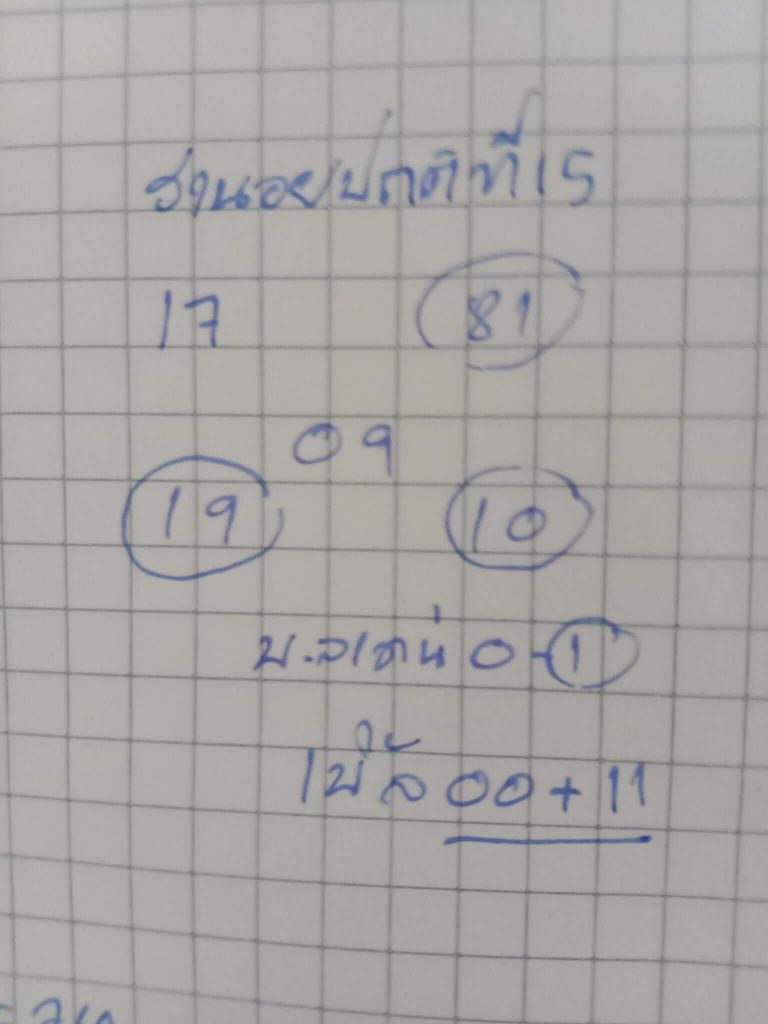 ฮานอยปกติที่15
17 81
09
19 10
บ.ล่าง 0-1
เบิ้ล 00+11